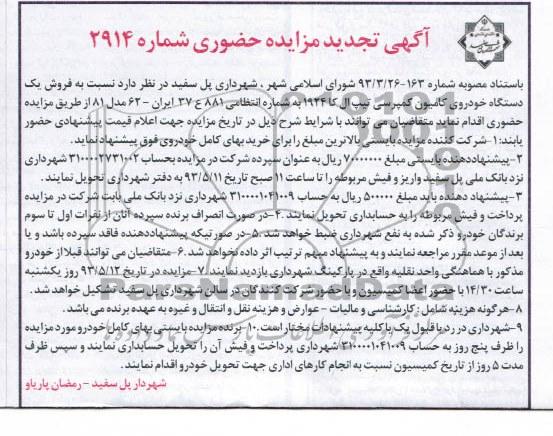 آگهی تجدید مزایده حضوری شماره ۲۹۱۴
باستناد مصوبه شماره ۱۶۳-۹۳/۳/۲۶ شورای اسلامی شهر ، شهرداری پل سفید در نظر دارد نسبت به فروش یک
دستگاه خودروی کامیون کمپرسی تیپ ال کا ۱۹۲۴ به شماره انتظامی ۸۸۱ ع ۳۷ ایران - ۶۲ مدل ۸۱ از طریق مزایده
حضوری اقدام نماید متقاضیان می توانند با شرایط شرح ذیل در تاریخ مزایده جهت اعلام قیمت پیشنهادی حضور
یابند: ۱-شرکت کننده مزایده بایستی بالاترین مبلغ را برای خرید بهای کامل خودروی فوق پیشنهاد نماید.
۲-پیشنهاددهنده بایستی مبلغ ۷۰۰۰۰۰۰۰ ریال به عنوان سپرده شرکت در مزایده بحساب ۳۱۰۰۰۰۲۷۳۱۰۰۲ شهرداری
نزد بانک ملی پل سفید واریز و فیش مربوطه را تا ساعت ۱۱ صبح تاریخ ۹۳/۵/۱۱ به دفتر شهرداری تحویل نمایند.
۳-پیشنهاد دهنده باید مبلغ ۵۰۰۰۰۰ ریال به حساب ۳۱۰۰۰۰۱۰۴۱۰۰۹ شهرداری نزد بانک ملی بابت شرکت در مزایده
پرداخت و فیش مربوطه را به حسابداری تحویل نمایند. ۴-در صورت انصراف برنده سپرده آنان از نفرات اول تا سوم
برندگان خودرو ذکر شده به نفع شهرداری ضبط خواهد شد. ۵-در صورتیکه پیشنهاددهنده فاقد سپرده باشد و یا
بعد از موعد مقرر مراجعه نمایند و به پیشنهاد مبهم ترتیب اثر داده نخواهد شد. ۶-متقاضیان می توانند قبلا از خودرو
مذکور با هماهنگی واحد نقلیه واقع در پارکینگ شهرداری بازدید نمایند. ۷-مزایده در تاریخ ۹۳/۵/۱۲ روز یکشنبه
ساعت ۱۴/۳۰ با حضور اعضا کمیسیون و با حضور شرکت کنندگان در سالن شهرداری پل سفید تشکیل خواهد شد.
۸-هرگونه هزینه شامل : کارشناسی و مالیات - عوارض و هزینه نقل و انتقال و غیره به عهده برنده می باشد.
۹-شهرداری در رد یا قبول یک یا کلیه پیشنهادات مختار است. ۱۰-برنده مزایده بایستی بهای کامل خودرو مورد مزایده
را ظرف پنج روز به حساب ۳۱۰۰۰۰۱۰۴۱۰۰۹ شهرداری پرداخت و فیش آن را تحویل حسابداری نمایند و سپس ظرف
مدت ۵ روز از تاریخ کمیسیون نسبت به انجام کارهای اداری جهت تحویل خودرو اقدام نمایند.
شهردار پل سفید - رمضان پاریاو
ParsNamadData